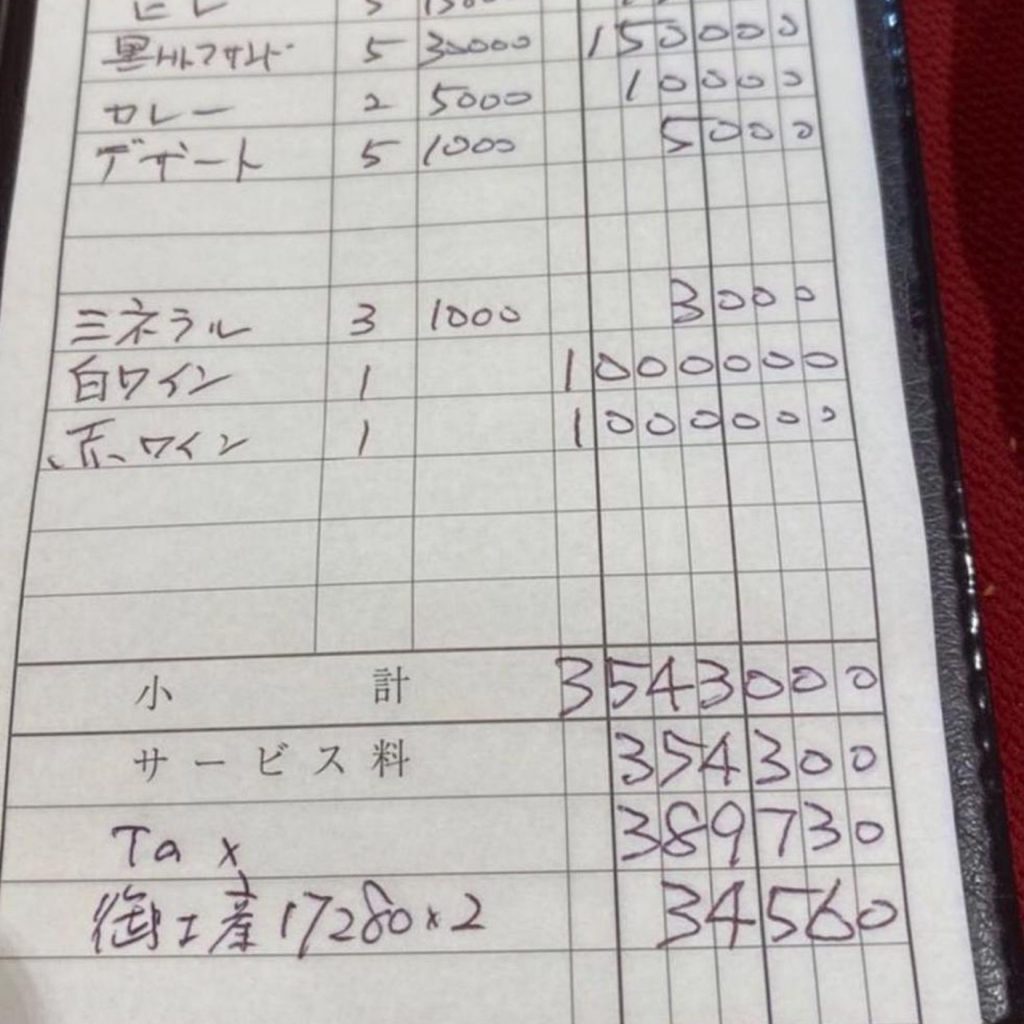 ヒレ 5
黒トリフサンド 5 30000 150000
カレー 2 5000 10000
デザート 5 1000 5000
ミネラル 3 1000 3000
白ワイン 1 1000000
赤ワイン 1 1000000
小計 3543000
サービス料 354300
Tax 389730
御土産17280×2 34560